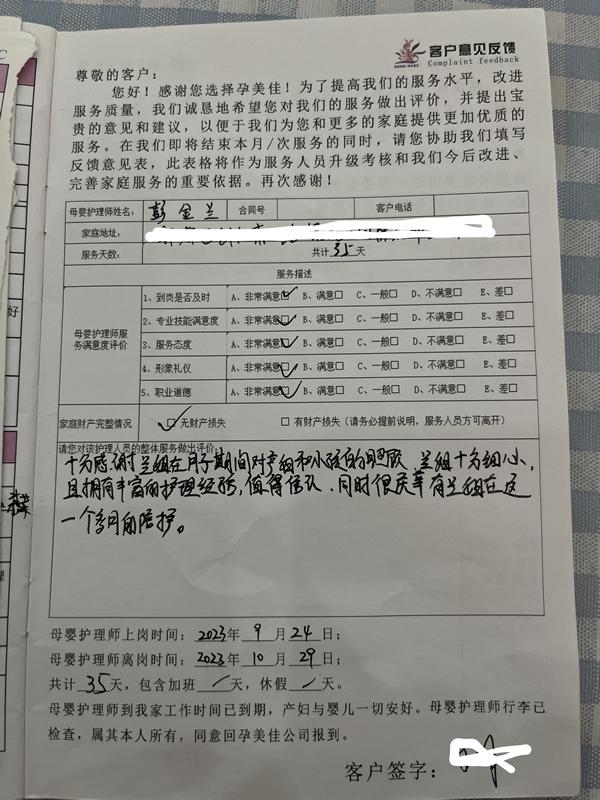 客户意见反馈
Complaint feedback
尊敬的客户：
您好！感谢您选择孕美佳！为了提高我们的服务水平，改进
服务质量，我们诚恳地希望您对我们的服务做出评价，并提出宝
贵的意见和建议，以便于我们为您和更多的家庭提供更加优质的
服务。在我们即将结束本月/次服务的同时，请您协助我们填写
反馈意见表，此表格将作为服务人员升级考核和我们今后改进、
完善家庭服务的重要依据。再次感谢！
母婴护理师姓名： 彭金兰 合同号 客户电话
家庭地址：
服务天数： 共计35天
服务描述
母婴护理师服务满意度评价
1、到岗是否及时 A、非常满意☑ B、满意□ C、一般□ D、不满意□ E、差□
2、专业技能满意度 A、非常满意☑ B、满意□ C、一般□ D、不满意□ E、差□
3、服务态度 A、非常满意☑ B、满意□ C、一般□ D、不满意□ E、差□
4、形象礼仪 A、非常满意☑ B、满意□ C、一般□ D、不满意□ E、差□
5、职业道德 A、非常满意☑ B、满意□ C、一般□ D、不满意□ E、差□
家庭财产完整情况 ☑无财产损失 □有财产损失（请务必提前说明，服务人员方可离开）
请您对该护理人员的整体服务做出评价：
十分感谢兰姐在月子期间对产妇和小孩的照顾 兰姐十分细心，
且拥有丰富的护理经验，值得信认．同时很庆幸有兰姐在这
一个多月的陪护。
母婴护理师上岗时间：2023年9月24日；
母婴护理师离岗时间：2023年10月29日；
共计35天，包含加班/天，休假/天。
母婴护理师到我家工作时间已到期，产妇与婴儿一切安好。母婴护理师行李已
检查，属其本人所有，同意回孕美佳公司报到。
客户签字：